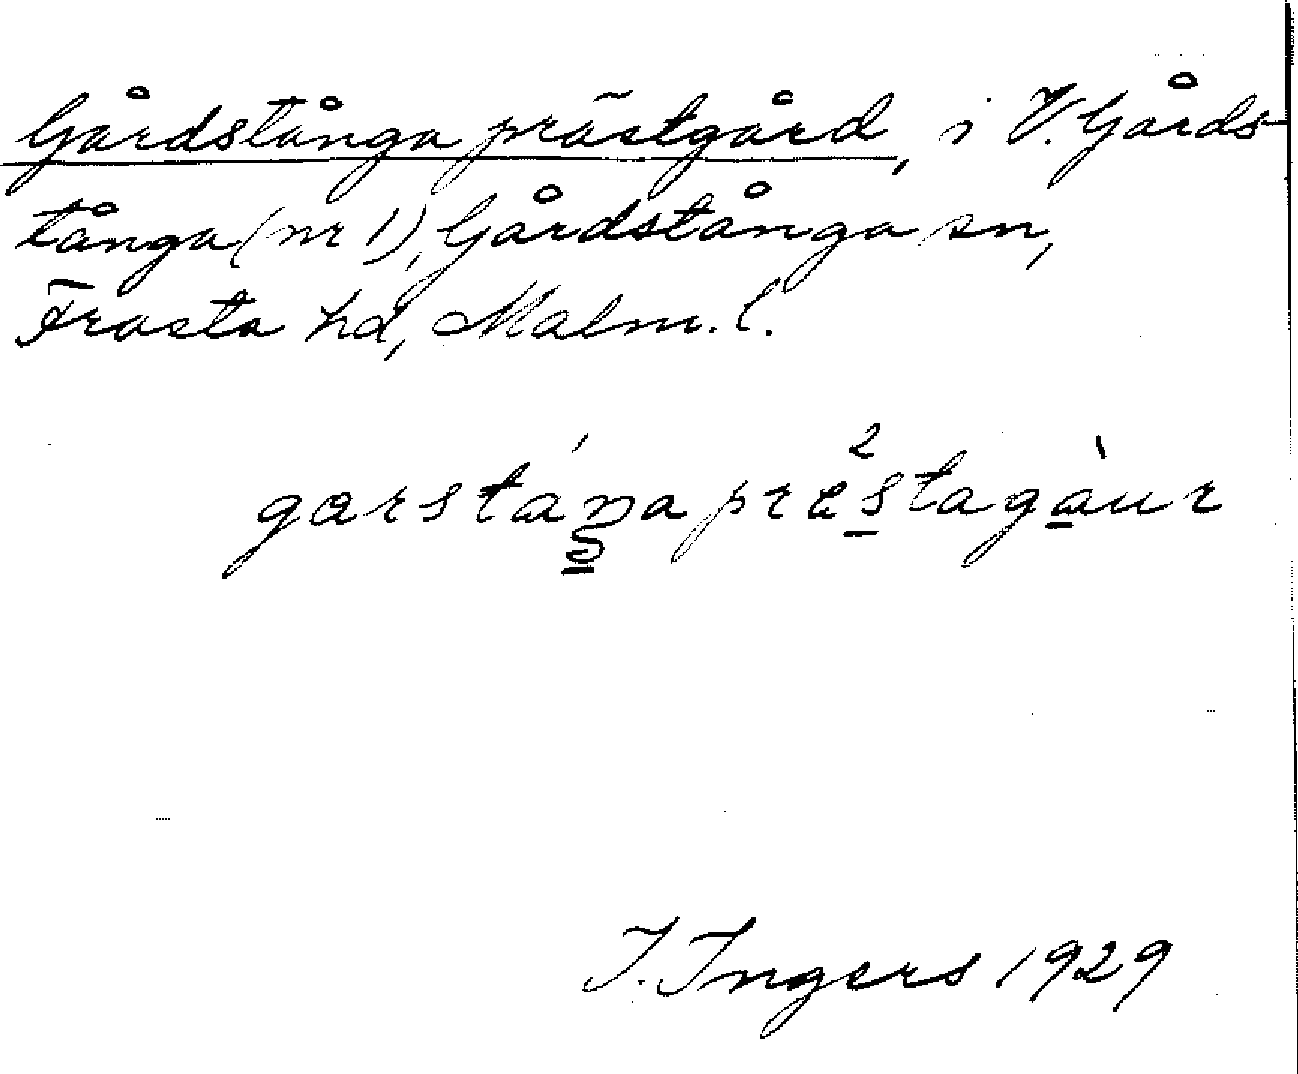 Gårdstånga prästgård, i V. Gårds-
tånga (nr 1), Gårdstånga sn,
Frosta hd, Malm. l.
garstáŋa prèstagàur
I. Ingers 1929